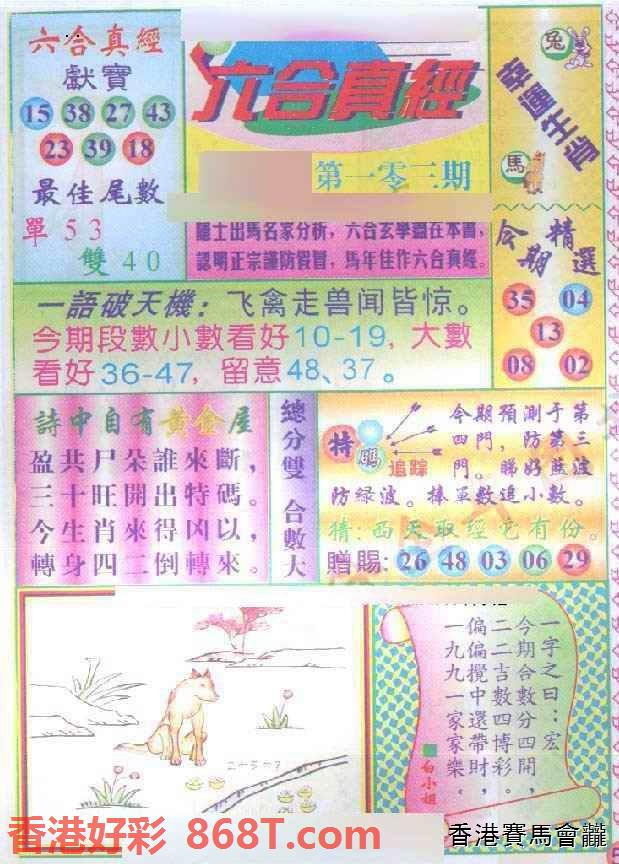 六合真經
獻寶
15 38 27 43
23 39 18
最佳尾數
單 5 3
雙 4 0
六合真經
第一零三期
隱士出馬名家分析，六合玄學盡在本書，
認明正宗謹防假冒，馬年佳作六合真經。
兔
幸運生肖
馬
今期精選
35 04
13
08 02
一語破天機：飞禽走兽闻皆惊。
今期段數小數看好10-19，大數
看好36-47，留意48、37。
詩中自有黃金屋
盈共尸朵誰來斷，
三十旺開出特碼。
今生肖來得凶以，
轉身四二倒轉來。
總分雙 合數大
特碼
追踪
今期預測于第
四門，防第三
門。睇好藍波
防緑波。捧單數追小數。
猜：西天取經它有份。
贈賜：26 48 03 06 29
一字之曰：宏
今期合數分四開，
二二吉數四博彩。
偏偏攪中還帶財，
一九九一家家樂。
白小姐
香港好彩 868T.com
香港賽馬會